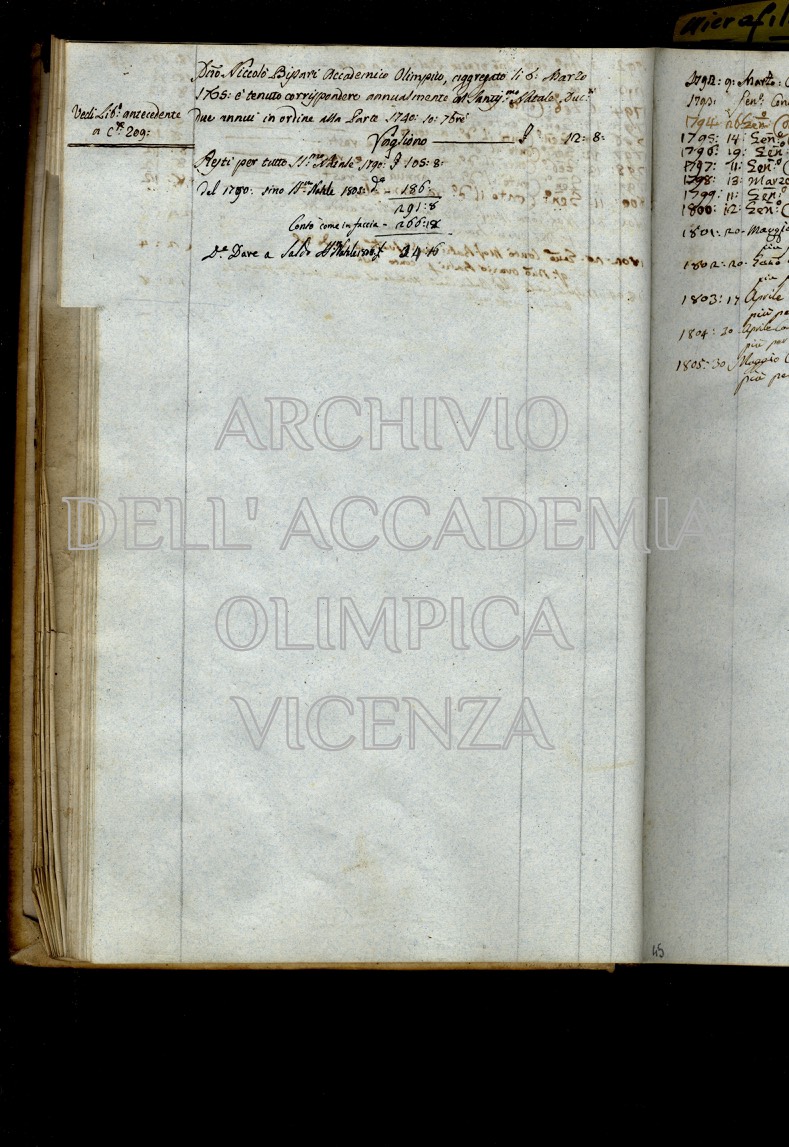 Microfil
Vedi Lib.º antecedente
a C.te 209:
Niccolò Bissari Accademico Olimpico, aggregato li 6: Marzo
1765: è tenuto corrispondere annualmente al Santiss.mo Natale Duc.ti
due annui in ordine alla Parte 1740: 10: 7bre
Vagliono 12: 8:
Resti per tutto 1790: 105: 8:
Del 1790: sino 1805: 186:
291: 8
Conto come in faccia - 266: 18
Dare a Saldo 24: 16
1792: 9: Marzo:
1793:
1794
1795: 14: Gen.º
1796: 19: Gen.º
1797: 11: Gen.º
1798: 13: Marzo
1799: 11: Gen.º
1800: 12: Gen.º
1801: 20: Maggio
1802: 20:
più p
1803: 17 Aprile
più pe
1804: 20 Aprile
più per
1805: 30 Maggio
più pe
ARCHIVIO
DELL' ACCADEMIA
OLIMPICA
VICENZA
45